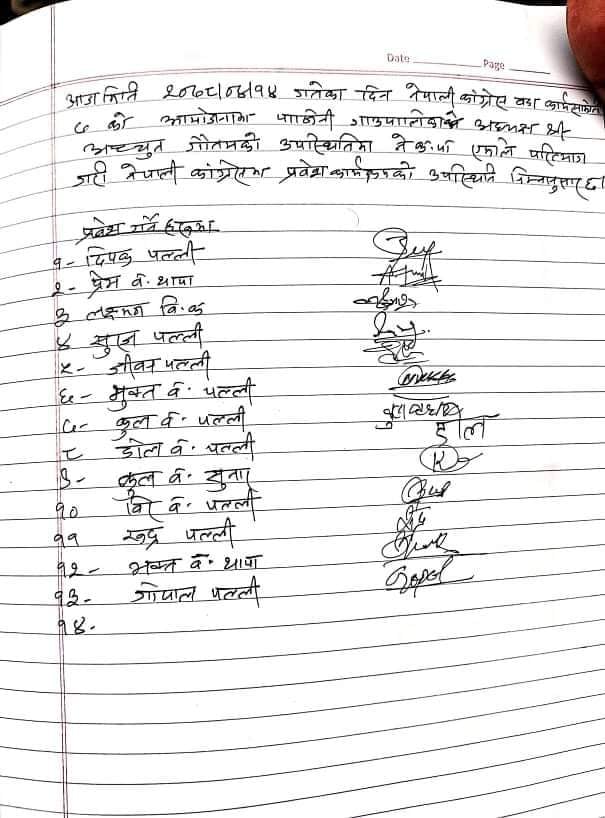 Date
Page
आज मिति २०७८/०८/१४ गतेका दिन नेपाली कांग्रेस वडा कार्यसमिति
७ को आयोजनामा पाणिनी गाउपालिकाका अध्यक्ष श्री
अच्युत गौतमको उपस्थितिमा ने.क.पा एमाले परित्याग
गरी नेपाली कांग्रेसमा प्रवेश कार्यक्रमको उपस्थिति निम्नानुसार छ।
प्रवेश गर्ने हरुका
१- दिपक पल्ली
२- प्रेम व. थापा
३ लक्ष्मन वि.क
४ सुरज पल्ली
५- जीवन पल्ली
६- भुक्त व. पल्ली
७- कुल व. पल्ली
८ डोल व. पल्ली डोल
९- कुल व. सुनार
१० विर व. पल्ली
११ रुद्र पल्ली
१२- भक्त व. थापा
१३- गोपाल पल्ली Gopal
१४-